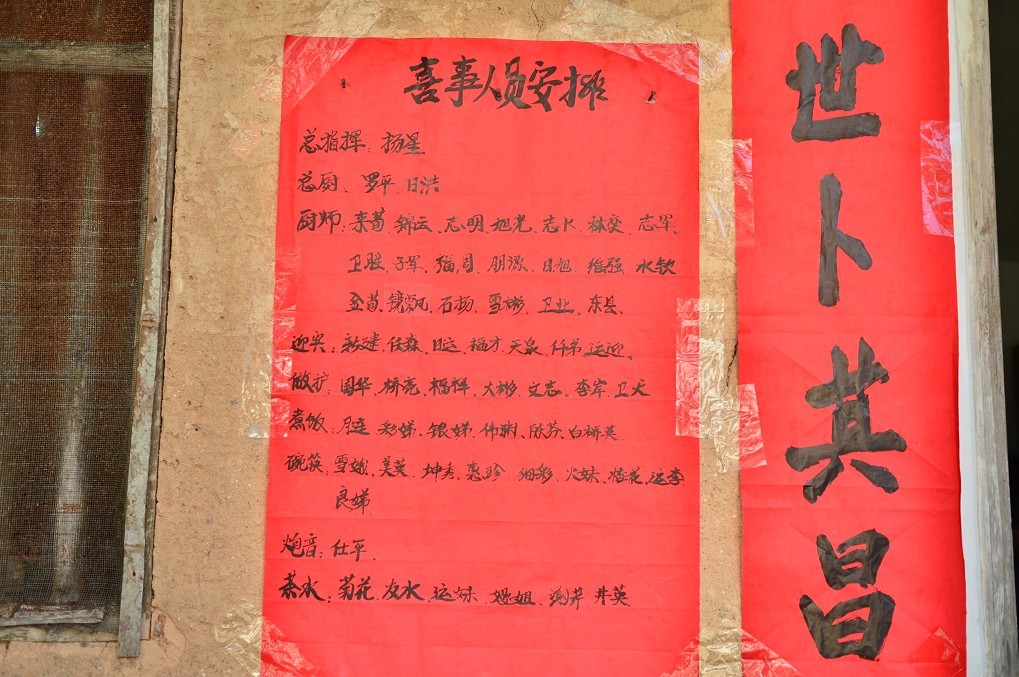 喜事人员安排
总指挥：杨星
总厨、罗平、日洪
厨师：来苗、锦云、志明、旭光、志卜、林奕、志军、
卫股、子军、福周、朋源、日旭、维强、水钦
金苗、镜帆、石扬、雪彬、卫业、东县、
迎宾：新建、任森、日运、福才、天泉、仟弟、运迎、
国华、桥亮、福祥、大彬、文志、李军、卫犬
煮饭、月连、彩娣、银娣、伟娴、欣芬、白桥英
碗筷、雪娥、美英、坤秀、惠珍、细彩、火妹、梅花、运李
良娣
炮音：仕平、
茶水：菊花、友水、运妹、嫂姐、井英
世卜其昌